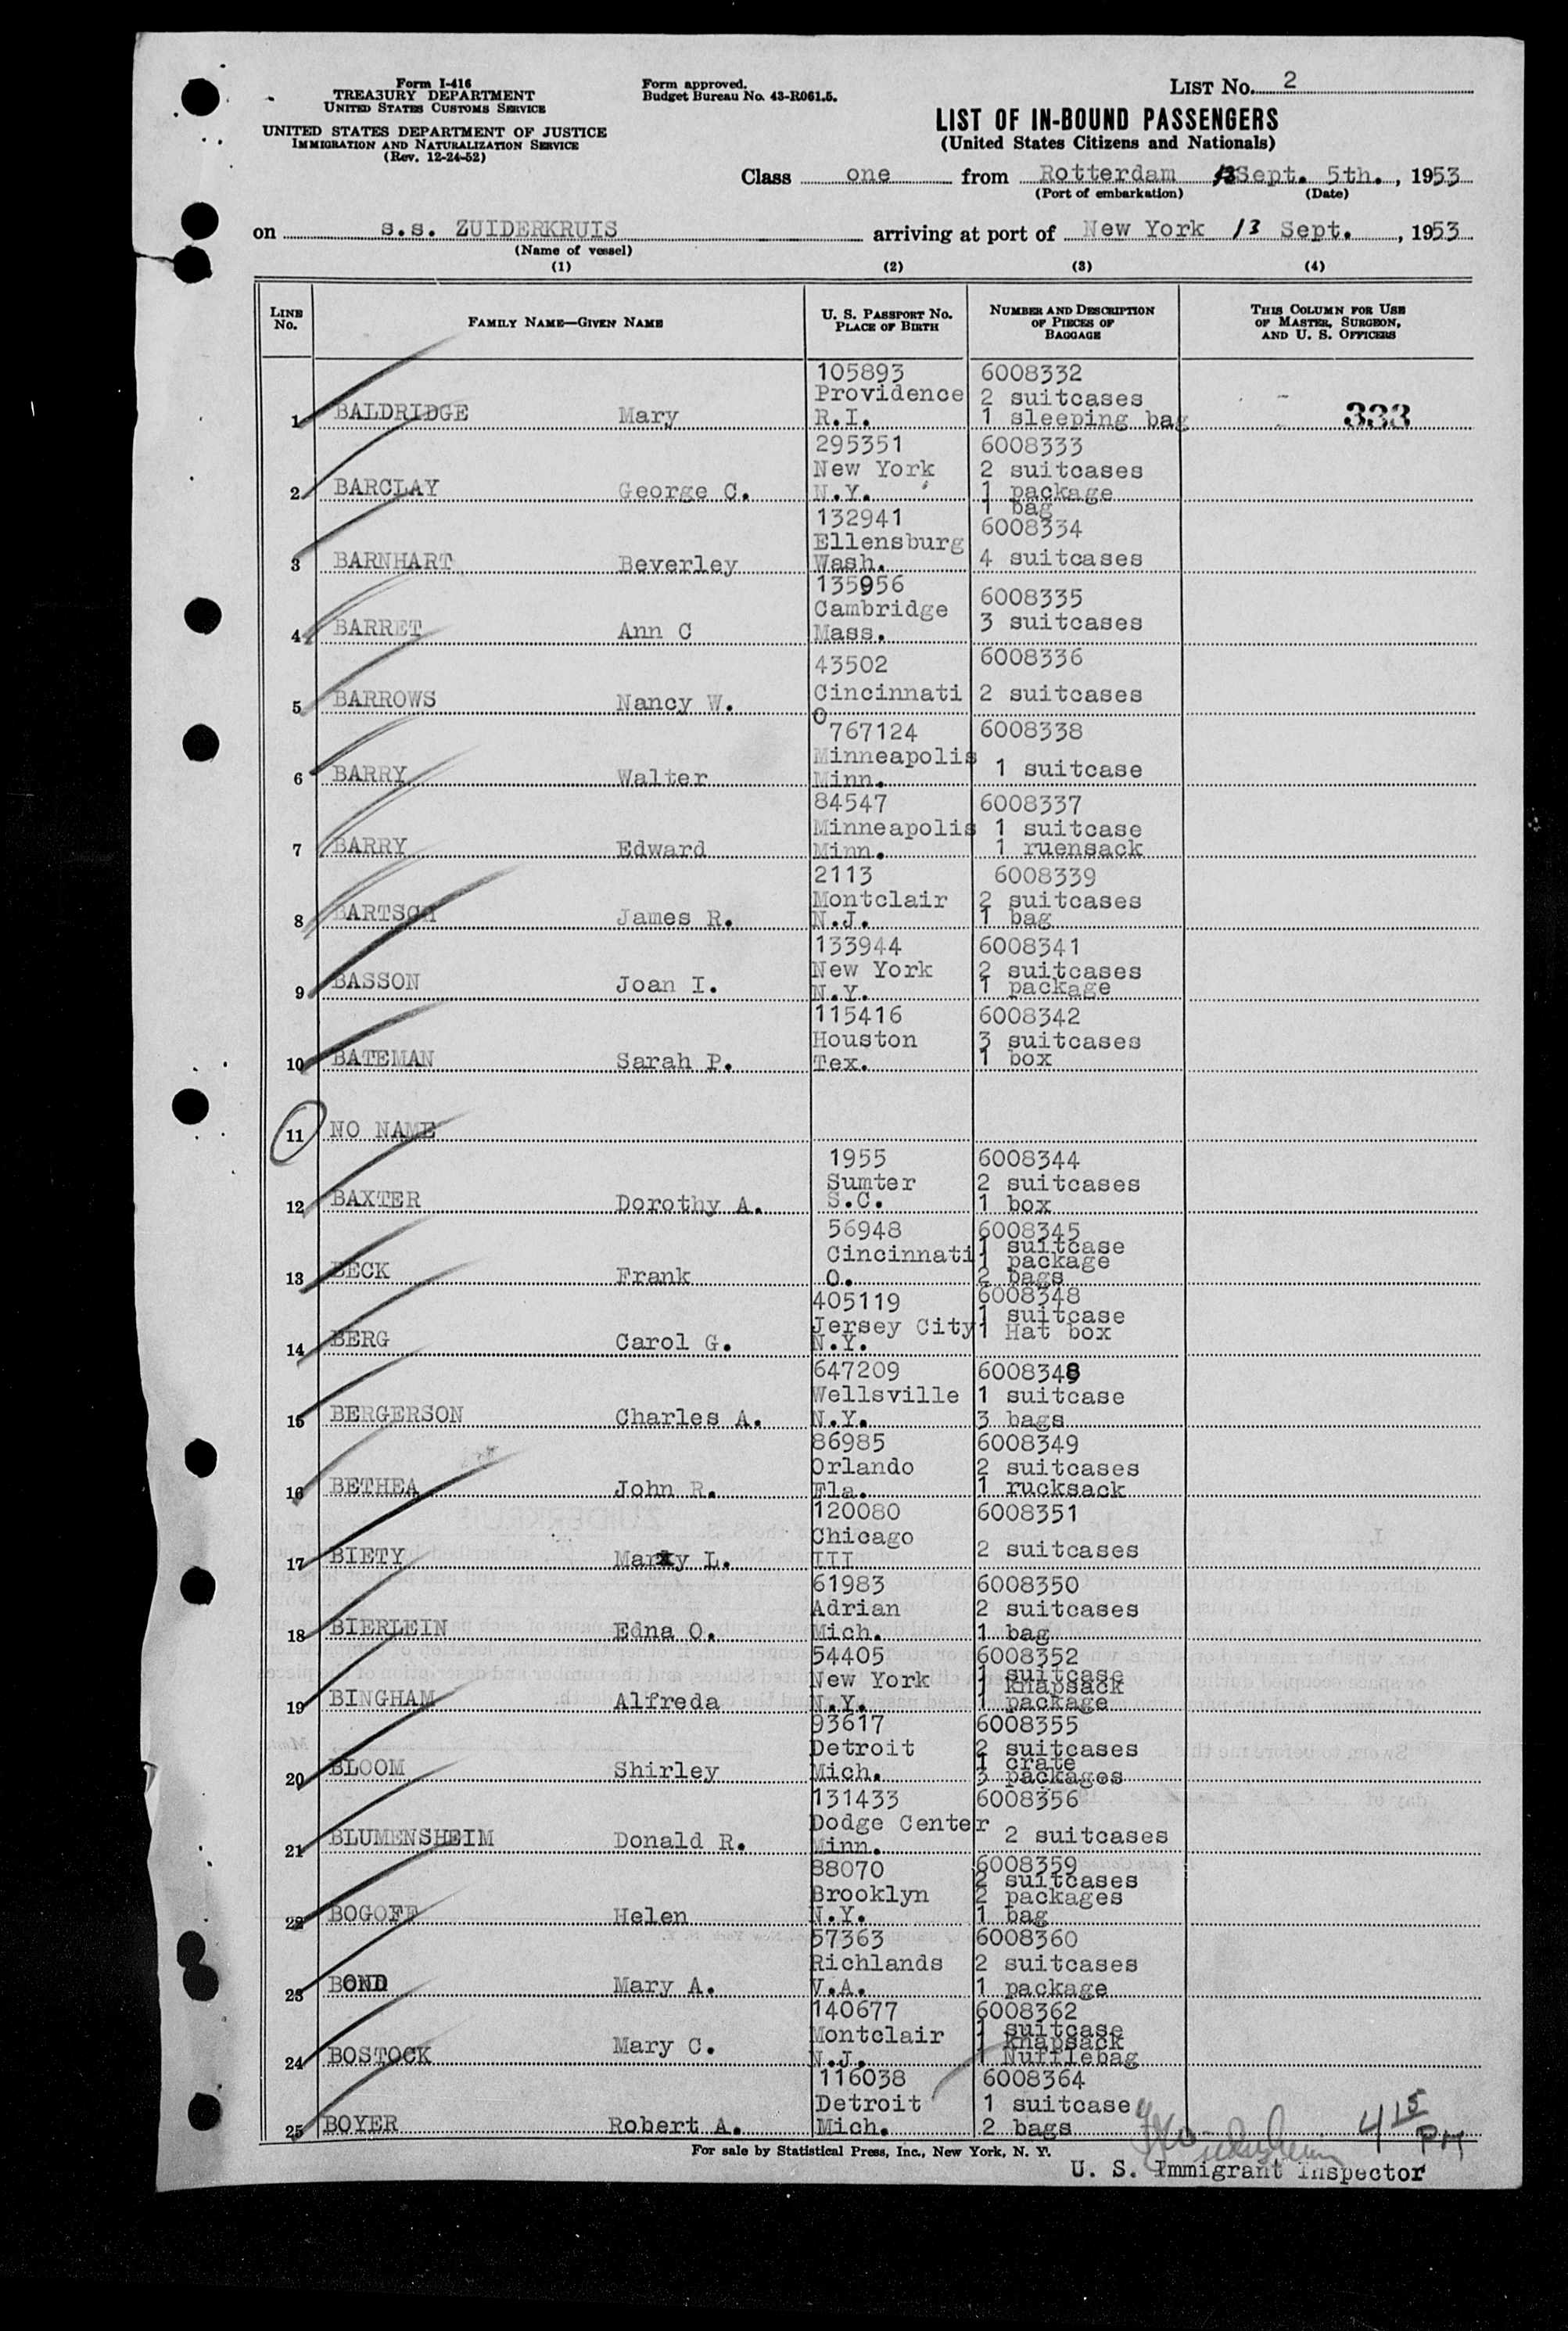 Form I-416
TREASURY DEPARTMENT
UNITED STATES CUSTOMS SERVICE
UNITED STATES DEPARTMENT OF JUSTICE
IMMIGRATION AND NATURALIZATION SERVICE
(Rev. 12-24-52)
Form approved.
Budget Bureau No. 43-R061.5.
LIST NO. 2
LIST OF IN-BOUND PASSENGERS
(United States Citizens and Nationals)
Class one from Rotterdam Sept. 5th., 1953
(Port of embarkation) (Date)
on s.s. ZUIDERKRUIS arriving at port of New York 13 Sept., 1953
(Name of vessel)
(1) (2) (3) (4)
LINE No. FAMILY NAME—GIVEN NAME U. S. PASSPORT NO. PLACE OF BIRTH NUMBER AND DESCRIPTION OF PIECES OF BAGGAGE THIS COLUMN FOR USE OF MASTER, SURGEON, AND U. S. OFFICERS
105893 6008332
Providence 2 suitcases
1 BALDRIDGE Mary R.I. 1 sleeping bag 333
295351 6008333
New York 2 suitcases
2 BARCLAY George C. N.Y. 1 package
1 bag
132941 6008334
Ellensburg
3 BARNHART Beverley Wash. 4 suitcases
135956 6008335
Cambridge 3 suitcases
4 BARRET Ann C Mass.
43502 6008336
5 BARROWS Nancy W. Cincinnati 2 suitcases
O
767124 6008338
Minneapolis 1 suitcase
6 BARRY Walter Minn.
84547 6008337
Minneapolis 1 suitcase
7 BARRY Edward Minn. 1 ruensack
2113 6008339
Montclair 2 suitcases
8 BARTSCH James R. N.J. 1 bag
133944 6008341
New York 2 suitcases
9 BASSON Joan I. N.Y. 1 package
115416 6008342
Houston 3 suitcases
10 BATEMAN Sarah P. Tex. 1 box
11 NO NAME
1955 6008344
Sumter 2 suitcases
12 BAXTER Dorothy A. S.C. 1 box
56948 6008345
Cincinnati 1 suitcase
1 package
13 BECK Frank O. 2 bags
405119 6008348
Jersey City 1 suitcase
14 BERG Carol G. N.Y. 1 Hat box
647209 6008348
Wellsville 1 suitcase
15 BERGERSON Charles A. N.Y. 3 bags
86985 6008349
Orlando 2 suitcases
16 BETHEA John R. Fla. 1 rucksack
120080 6008351
Chicago
17 BIETY Marxy L. III 2 suitcases
61983 6008350
Adrian 2 suitcases
18 BIERLEIN Edna O. Mich. 1 bag
54405 6008352
New York 1 suitcase
1 knapsack
19 BINGHAM Alfreda N.Y. 1 package
93617 6008355
Detroit 2 suitcases
1 crate
20 BLOOM Shirley Mich. 3 packages
131433 6008356
Dodge Center
21 BLUMENSHEIM Donald R. Minn. 2 suitcases
88070 6008359
2 suitcases
Brooklyn 2 packages
22 BOGOFF Helen N.Y. 1 bag
57363 6008360
Richlands 2 suitcases
23 BOND Mary A. V.A. 1 package
140677 6008362
Montclair 1 suitcase
1 knapsack
24 BOSTOCK Mary C. N.J. 1 Nufflebag
116038 6008364
Detroit 1 suitcase
25 BOYER Robert A. Mich. 2 bags
4 15 PM
For sale by Statistical Press, Inc., New York, N. Y.
U. S. Immigrant Inspector